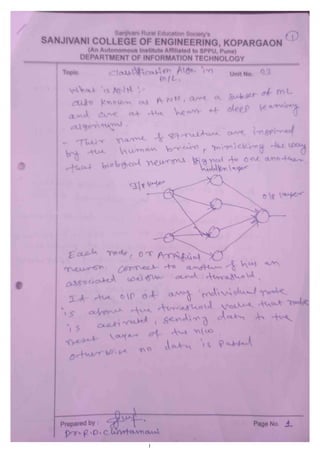 Sanjivani Rural Education Society's
SANJIVANI COLLEGE OF ENGINEERING, KOPARGAON
(An Autonomous Institute Affiliated to SPPU, Pune)
DEPARTMENT OF INFORMATION TECHNOLOGY
1
Topic classification Algo in Unit No: 03
M/L.
what is NN :-
also known as ANN, are a subset of ML
and are at the heart of deep learning
algorithms.
- Their name & structure are inspired
by the human brain, mimicking the way
that biological neurons signal to one another
hidden layer
I/p layer
o/p layer
Each node, or Artificial
neuron, connect to another & has an
associated weight and threshold.
If the o/p of any individual node
is above the threshold value that node
is activated, sending data to the
next layer of the n/w
otherwise no data is passed
Prepared by :
Page No. 1
Dr. R.D. Chintamani
1